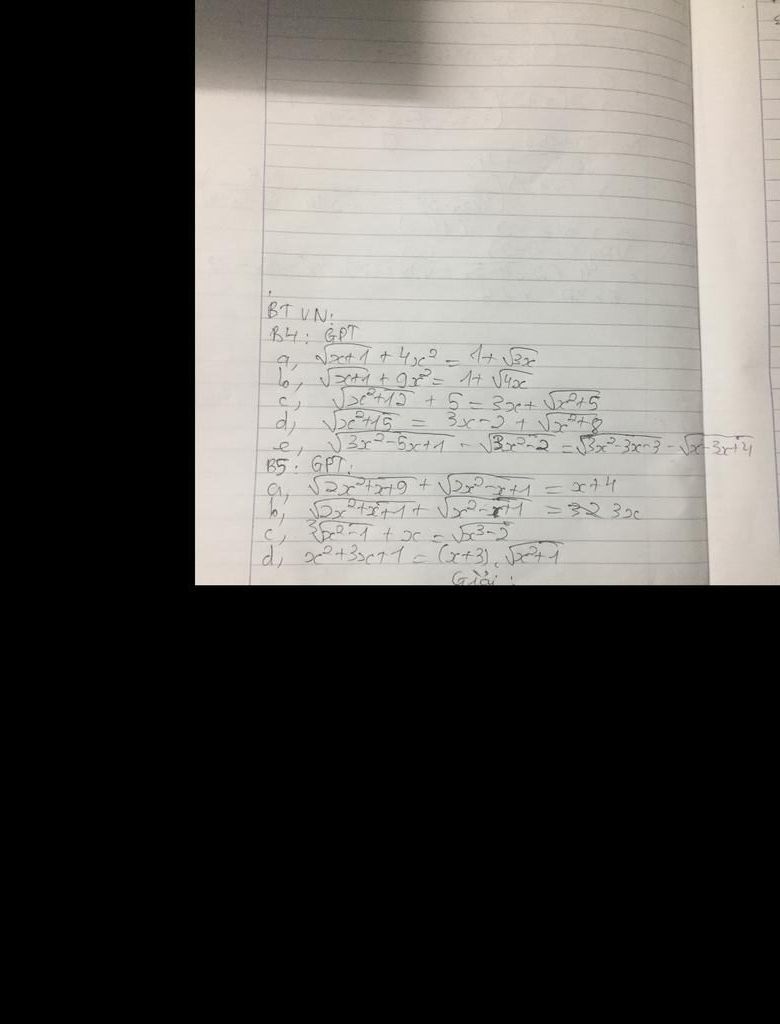 BTVN:
B4: GPT
a, √x+1 + 4x² = 1 + √3x
b, √x+1 + 9x² = 1 + √4x
c, √x²+12 + 5 = 3x + √x²+5
d, √x²+15 = 3x - 2 + √x²+8
e, √3x²-5x+1 - √3x²-2 = √3x²-3x-3 - √x-3x+4
B5: GPT:
a, √2x²+x+9 + √2x²-x+1 = x+4
b, √2x²+x+1 + √x²-x+1 = 3x
c, ³√x²-1 + x = √x³-2
d, x²+3x+1 = (x+3).√x²+1
Giải: